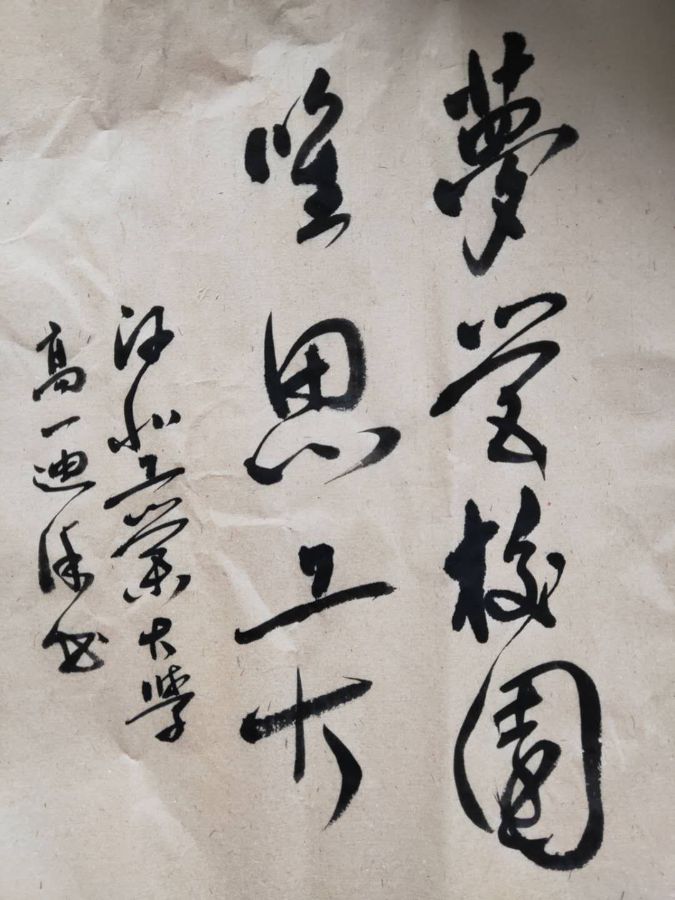 夢萦校園
唯思工大
河北工業大學
高一迪涂书